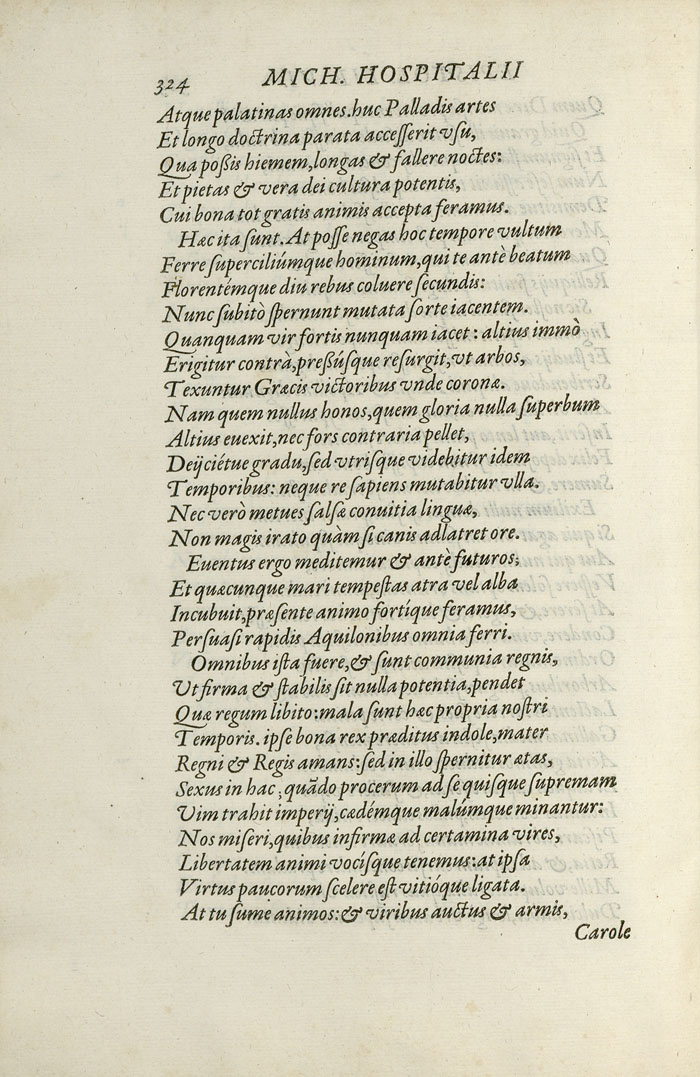 324 MICH. HOSPITALII
Atque palatinas omnes.huc Palladis artes
Et longo doctrina parata accesserit vsu,
Qua poßis hiemem,longas & fallere noctes:
Et pietas & vera dei cultura potentis,
Cui bona tot gratis animis accepta feramus.
Hæc ita sunt. At posse negas hoc tempore vultum
Ferre superciliúmque hominum,qui te antè beatum
Florentémque diu rebus coluere secundis:
Nunc subitò spernunt mutata sorte iacentem.
Quanquam vir fortis nunquam iacet: altius immò
Erigitur contrà,preßúsque resurgit,vt arbos,
Texuntur Græcis victoribus vnde coronæ.
Nam quem nullus honos,quem gloria nulla superbum
Altius euexit,nec fors contraria pellet,
Deijciétue gradu,sed vtrisque videbitur idem
Temporibus: neque re sapiens mutabitur vlla.
Nec verò metues salsæ conuitia linguæ,
Non magis irato quàm si canis adlatret ore.
Euentus ergo meditemur & antè futuros;
Et quæcunque mari tempestas atra vel alba
Incubuit,præsente animo fortíque feramus,
Persuasi rapidis Aquilonibus omnia ferri.
Omnibus ista fuere,& sunt communia regnis,
Vt firma & stabilis sit nulla potentia,pendet
Quæ regum libito:mala sunt hæc propria nostri
Temporis. ipse bona rex præditus indole,mater
Regni & Regis amans:sed in illo spernitur ætas,
Sexus in hac ; quãdo procerum ad se quisque supremam
Vim trahit imperij,cædémque malúmque minantur:
Nos miseri,quibus infirmæ ad certamina vires,
Libertatem animi vocísque tenemus:at ipsa
Virtus paucorum scelere est vitióque ligata.
At tu sume animos:& viribus auctus & armis,
Carole